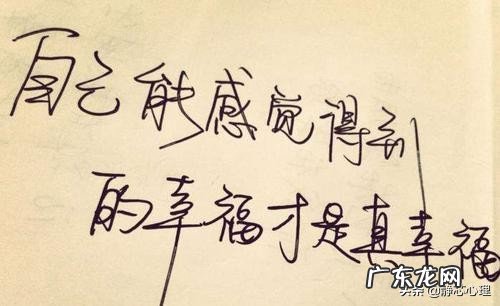 自己能感觉得到
的幸福才是真幸福
广东龙网
头条@静芯心理